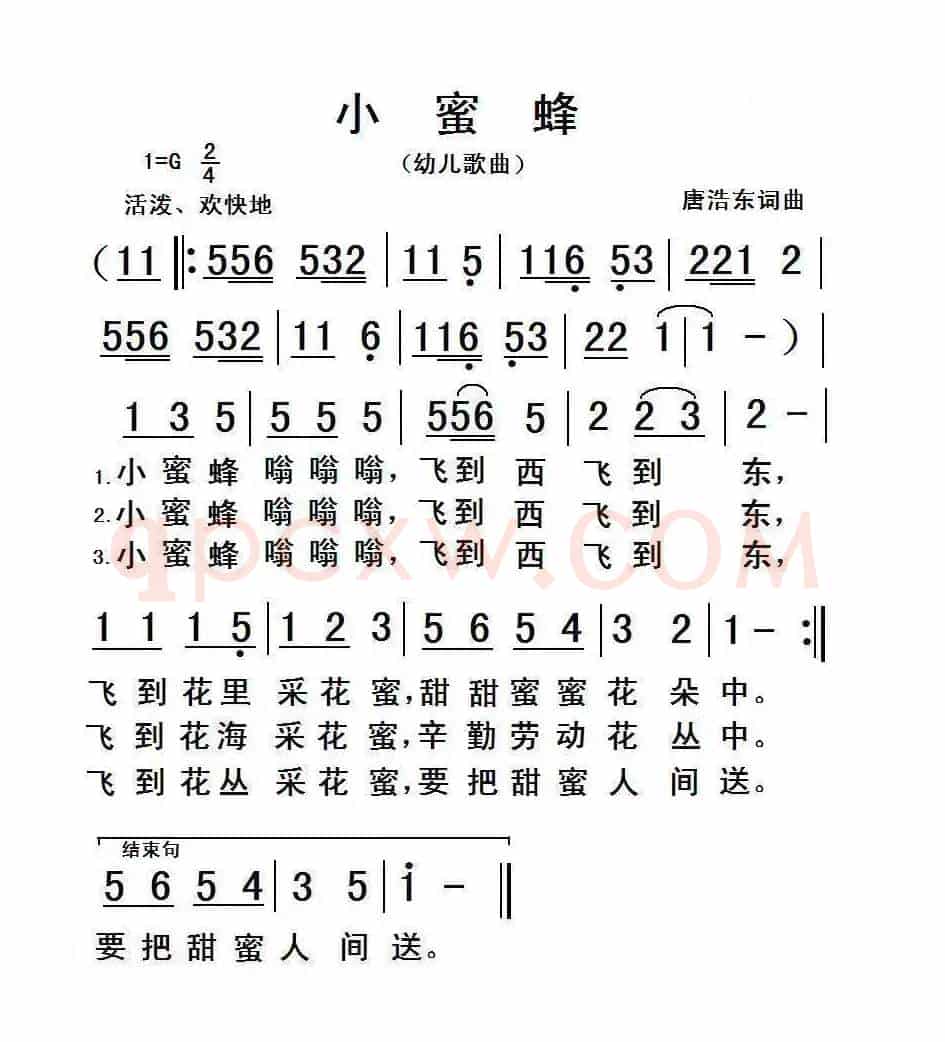 小 蜜 蜂
1=G 2/4 （幼儿歌曲）
活泼、欢快地 唐浩东词曲
（11 |: 556 532 | 11 5̣ | 116̣ 5̣3 | 221 2 |
556 532 | 11 6̣ | 116̣ 5̣3 | 22 1 | 1 － ）|
1 3 5 | 5 5 5 | 556 5 | 2 2 3 | 2 － |
1.小 蜜 蜂 嗡 嗡 嗡，飞 到 西 飞 到 东，
2.小 蜜 蜂 嗡 嗡 嗡，飞 到 西 飞 到 东，
3.小 蜜 蜂 嗡 嗡 嗡，飞 到 西 飞 到 东，
qpcxw.com
1 1 1 5̣ | 1 2 3 | 5 6 5 4 | 3 2 | 1 － :|
飞 到 花 里 采 花 蜜，甜 甜 蜜 蜜 花 朵 中。
飞 到 花 海 采 花 蜜，辛 勤 劳 动 花 丛 中。
飞 到 花 丛 采 花 蜜，要 把 甜 蜜 人 间 送。
结束句
5 6 5 4 | 3 5 | 1̇ － ||
要 把 甜 蜜 人 间 送。